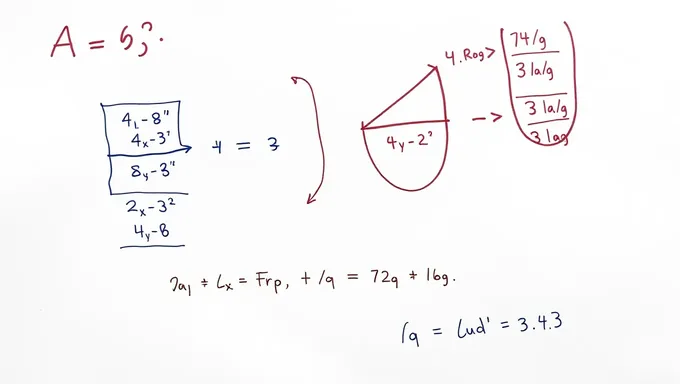 A = 5,?.
4L-8"
4x-3'
8y-3"
2x-3²
4y-8
+ = 3
4y-2'
4.Rog>
74/g
3 la/g
3 la/g
3 lag
= Frp, + /q = 72q + 16g.
= Lud' = 3.4.3